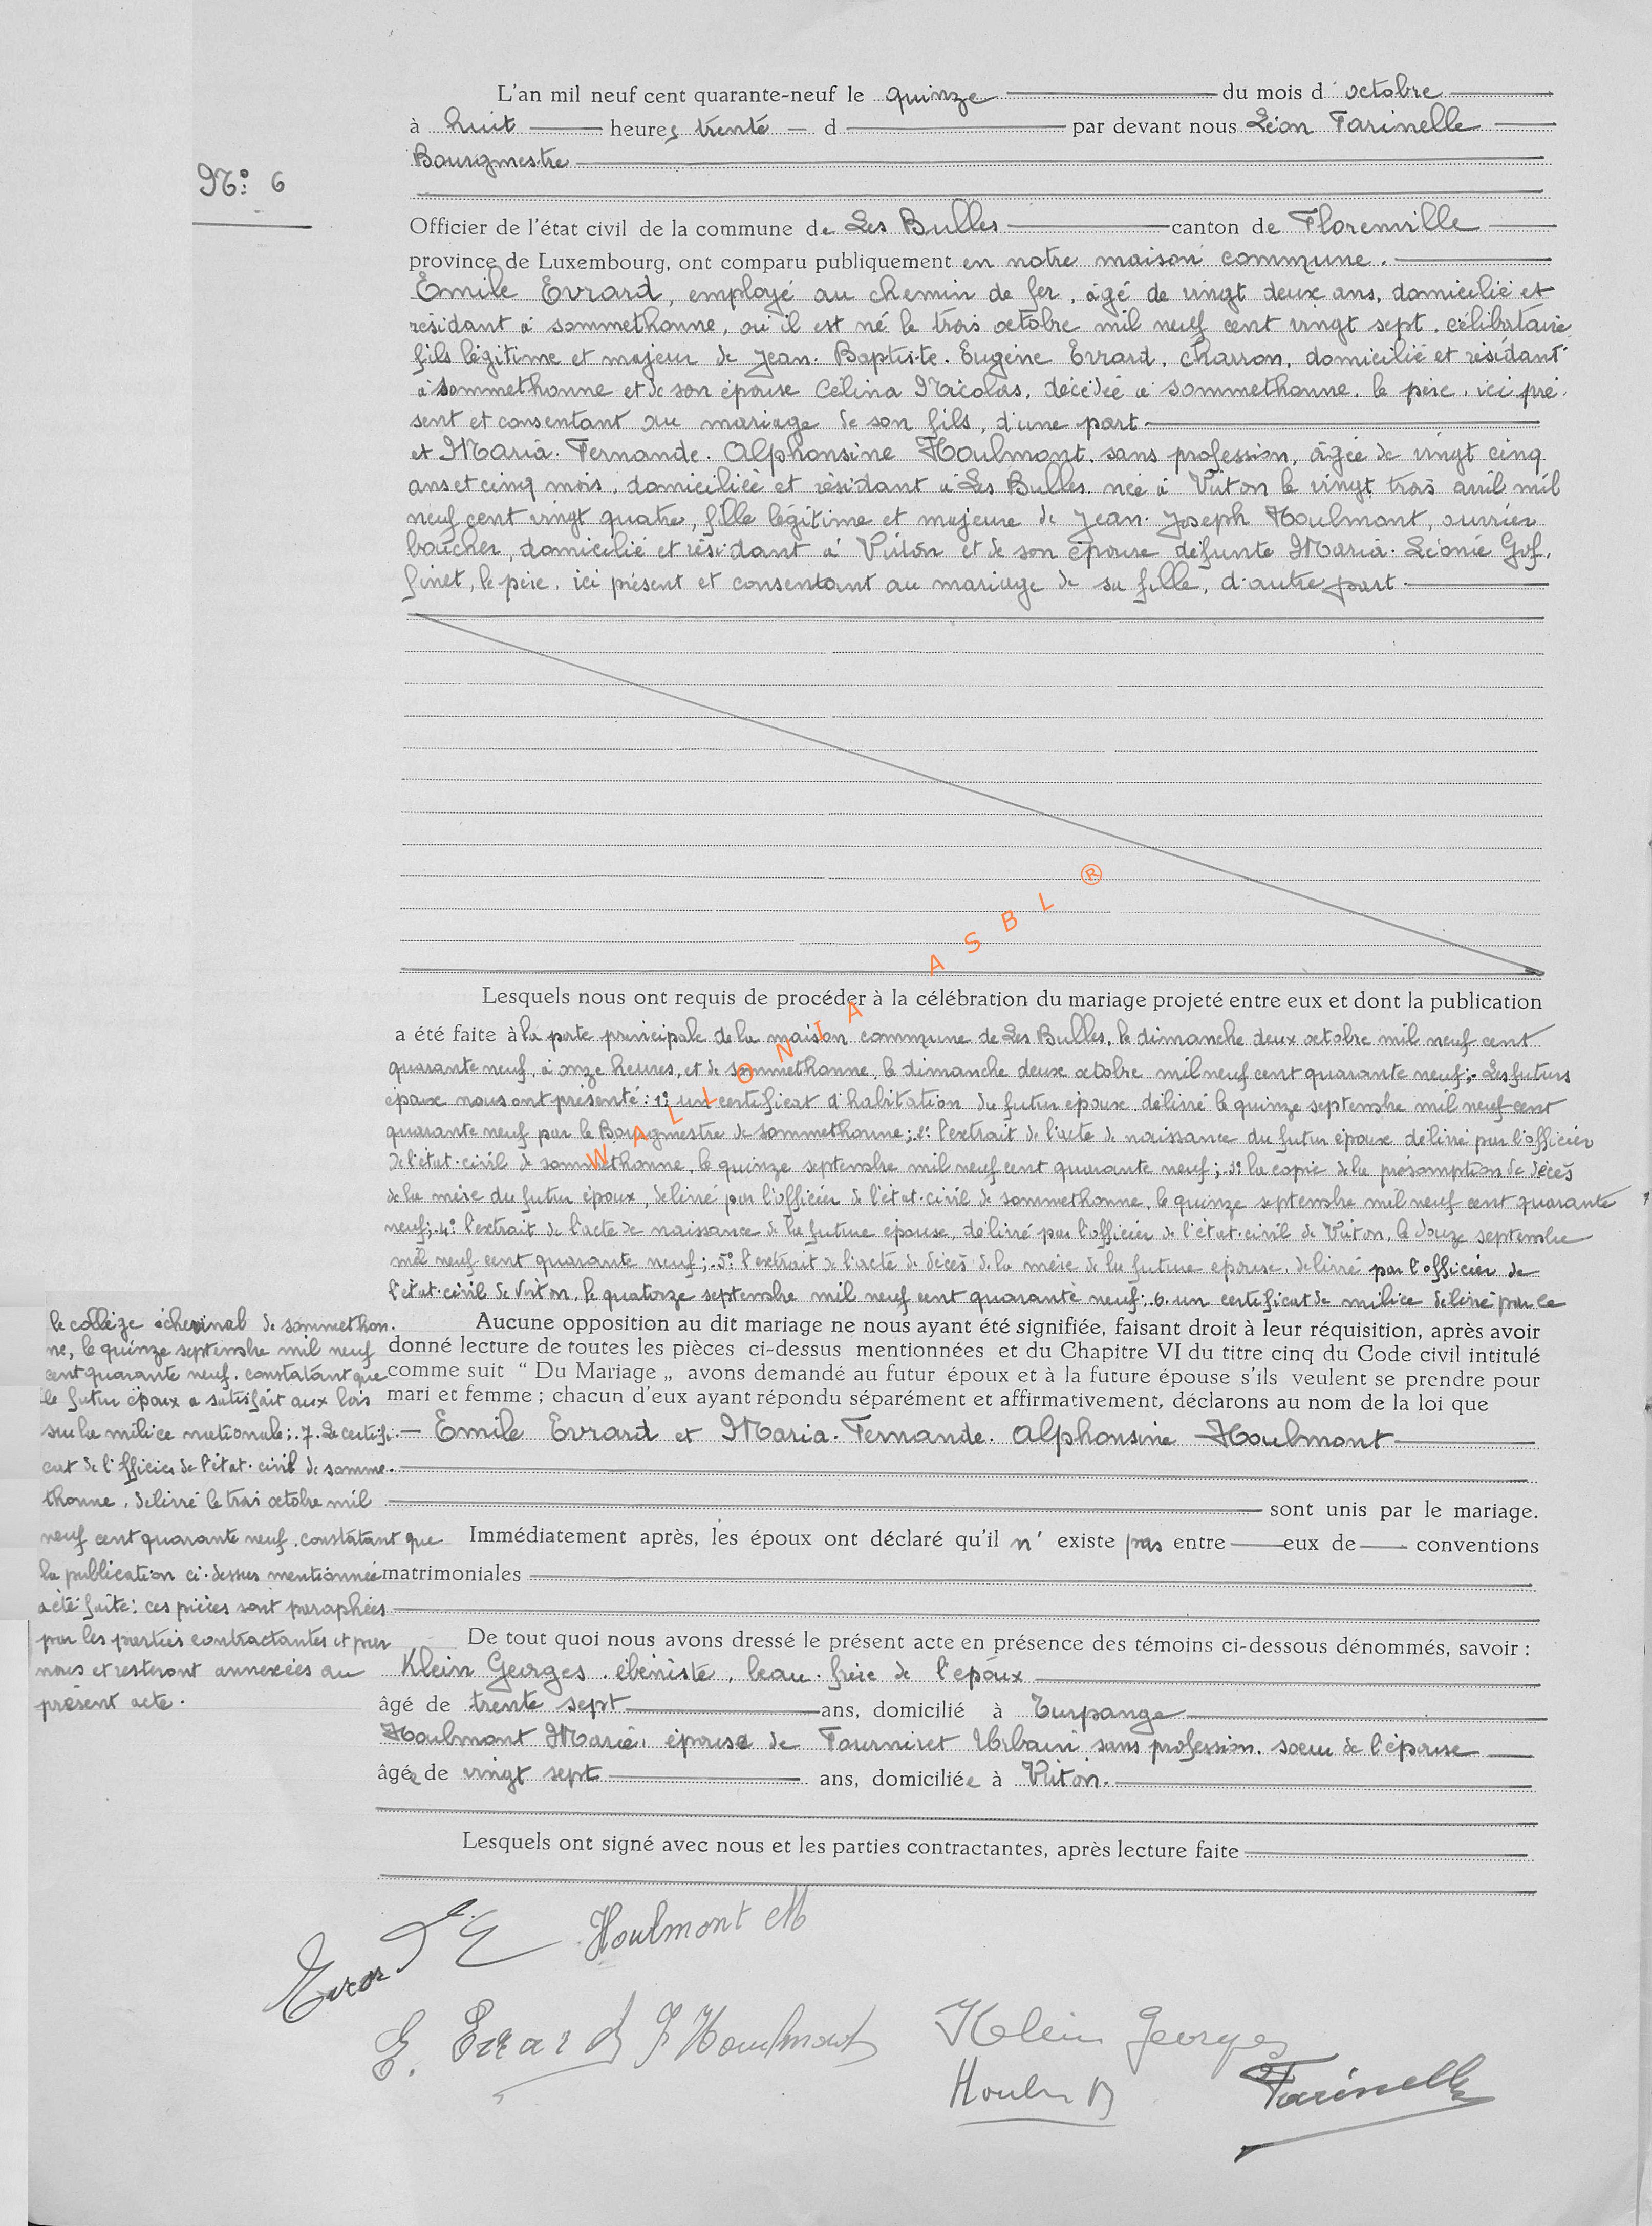 L'an mil neuf cent quarante-neuf le quinze du mois d octobre
à huit heures trente d par devant nous Léon Farinelle
Bourgmestre
N° 6
Officier de l'état civil de la commune de Les Bulles canton de Florenville
province de Luxembourg, ont comparu publiquement en notre maison commune.
Emile Evrard, employé au chemin de fer, âgé de vingt deux ans, domicilié et
résidant à Sommethonne, où il est né le trois octobre mil neuf cent vingt sept, célibataire
fils légitime et majeur de Jean-Baptiste-Eugène Evrard, charron, domicilié et résidant
à Sommethonne et de son épouse Célina Nicolas, décédée à Sommethonne, le père, ici pré-
sent et consentant au mariage de son fils, d'une part
et Maria-Fernande-Alphonsine Houlmont, sans profession, âgée de vingt cinq
ans et cinq mois, domiciliée et résidant à Les Bulles née à Virton le vingt trois avril mil
neuf cent vingt quatre, fille légitime et majeure de Jean-Joseph Houlmont, ouvrier
boucher, domicilié et résidant à Virton et de son épouse défunte Maria-Léonie Gof-
finet, le père, ici présent et consentant au mariage de sa fille, d'autre part
WALLONIA ASBL ®
Lesquels nous ont requis de procéder à la célébration du mariage projeté entre eux et dont la publication
a été faite à la porte principale de la maison commune de Les Bulles, le dimanche deux octobre mil neuf cent
quarante neuf, à onze heures, et de Sommethonne, le dimanche deux octobre mil neuf cent quarante neuf;- Les futurs
époux nous ont présenté: 1° un certificat d'habitation du futur époux, délivré le quinze septembre mil neuf cent
quarante neuf par le Bourgmestre de Sommethonne; 2° l'extrait de l'acte de naissance du futur époux délivré par l'officier
de l'état-civil de Sommethonne, le quinze septembre mil neuf cent quarante neuf; 3° la copie de la présomption de décès
de la mère du futur époux, délivré par l'officier de l'état-civil de Sommethonne, le quinze septembre mil neuf cent quarante
neuf; 4° l'extrait de l'acte de naissance de la future épouse, délivré par l'officier de l'état-civil de Virton, le douze septembre
mil neuf cent quarante neuf; 5° l'extrait de l'acte de décès de la mère de la future épouse, délivré par l'officier de
l'état-civil de Virton, le quatorze septembre mil neuf cent quarante neuf; 6. un certificat de milice délivré par le
le collège échevinal de Sommethon-
ne, le quinze septembre mil neuf
cent quarante neuf, constatant que
le futur époux a satisfait aux lois
sur la milice nationale; 7. Le certifi-
cat de l'officier de l'état-civil de Somme-
thonne, délivré le trois octobre mil
neuf cent quarante neuf, constatant que
la publication ci-dessus mentionnée
a été faite: ces pièces sont paraphées
par les parties contractantes et par
nous et resteront annexées au
présent acte.
Aucune opposition au dit mariage ne nous ayant été signifiée, faisant droit à leur réquisition, après avoir
donné lecture de toutes les pièces ci-dessus mentionnées et du Chapitre VI du titre cinq du Code civil intitulé
comme suit “ Du Mariage „ avons demandé au futur époux et à la future épouse s'ils veulent se prendre pour
mari et femme ; chacun d'eux ayant répondu séparément et affirmativement, déclarons au nom de la loi que
Emile Evrard et Maria-Fernande-Alphonsine Houlmont
sont unis par le mariage.
Immédiatement après, les époux ont déclaré qu'il n' existe pas entre eux de conventions
matrimoniales
De tout quoi nous avons dressé le présent acte en présence des témoins ci-dessous dénommés, savoir :
Klein Georges, ébéniste, beau-frère de l'époux
âgé de trente sept ans, domicilié à Turpange
Houlmont Marie, épouse de Fourniret Urbain, sans profession, sœur de l'épouse
âgée de vingt sept ans, domiciliée à Virton.
Lesquels ont signé avec nous et les parties contractantes, après lecture faite
Evrard E Houlmont M
E. Evrard J Houlmont Klein Georges
Farinelle